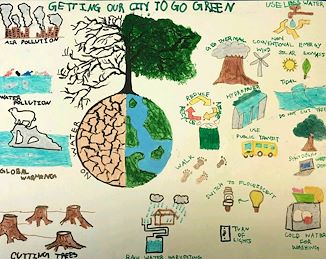 GETTING OUR CITY TO GO GREEN
AIR POLLUTION
WATER POLLUTION
GLOBAL WARMING
CUTTING TREES
NO WATER
REDUCE
RECYCLE
USE LESS WATER
NON CONVENTIONAL ENERGY
GEOTHERMAL
WIND
SOLAR
BIOGAS
TIDAL
HYDROPOWER
DO NOT CUT TREES
USE PUBLIC TRANSIT
WALK
SWITCH TO FLUORESCENT
TURN OF LIGHTS
COLD WATER FOR WASHING
RAIN WATER HARVESTING